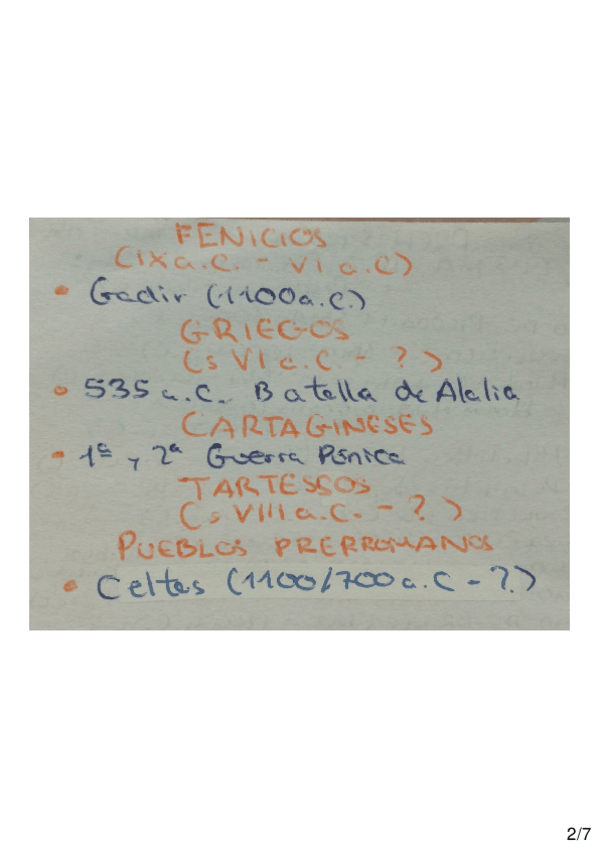 FENICIOS
(IX a.C. - VI a.C)
• Gadir (1100a.C.)
GRIEGOS
(s VI a.C. - ?)
• 535 a.C. Batalla de Alalia
CARTAGINESES
- 1ª y 2ª Guerra Púnica
TARTESSOS
(s VIII a.C. - ?)
PUEBLOS PRERROMANOS
• Celtas (1100/700 a.C - ?)
2/7